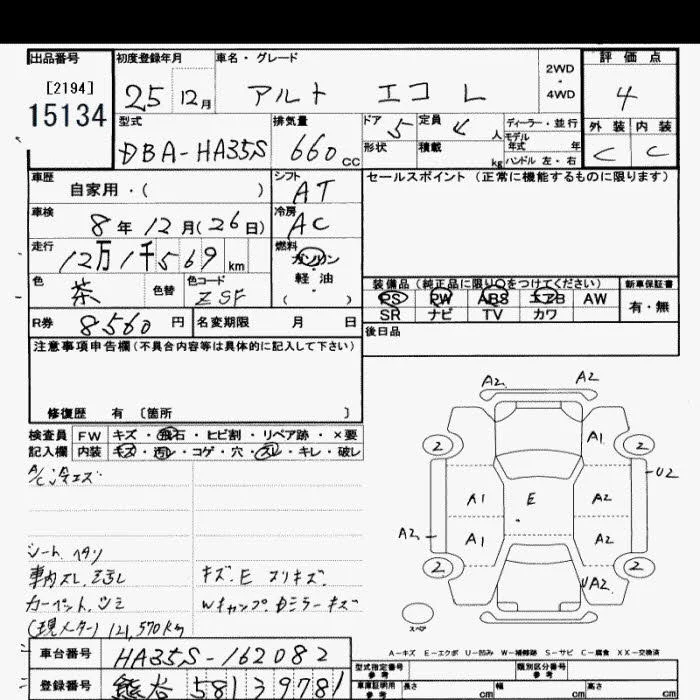 出品番号 初度登録年月 車名・グレード 評価点
[2194] 2WD
15134 25 12月 アルト エコ L ・ 4
4WD
型式 排気量 ドア 5 定員 4人 ディーラー・並行 外装 内装
DBA-HA35S 660cc 形状 積載 kg モデル年式 年 C C
ハンドル 左・右
車歴 シフト セールスポイント(正常に機能するものに限ります)
自家用・( ) AT
車検 冷房
8年12月(26日) AC
走行 燃料
12万1千569km ガソリン
・
軽油
色 色替 色コード ( )
茶 ZSF
装備品(純正品に限り○をつけてください) 新車保証書
PS PW ABS エアB AW 有・無
SR ナビ TV カワ
R券 8560円 名変期限 月 日 後日品
注意事項申告欄(不具合内容等は具体的に記入して下さい)
修復歴 有 〔箇所 〕
検査員 FW キズ・飛石・ヒビ割・リペア跡・×要
記入欄 内装 キズ・汚レ・コゲ・穴・スレ・キレ・破レ
A/C冷エズ
シート ヘタリ
車内スレ、ヨゴレ キズ.E スリキズ.
カーペット、シミ
(現メーター) 121,570Km
A2 A2
A1
2 2
U2
A1 E A2
A2
A1 A2
2 2
UA2
スペア
A-キズ E-エクボ U-凹み W-補修跡 S-サビ C-腐食 XX-交換済
車台番号 HA35S-162082
登録番号 熊谷 581 3 9781
型式指定番号 参考 類別区分番号 参考
車庫証明用 参考 長さ cm 幅 cm 高さ cm